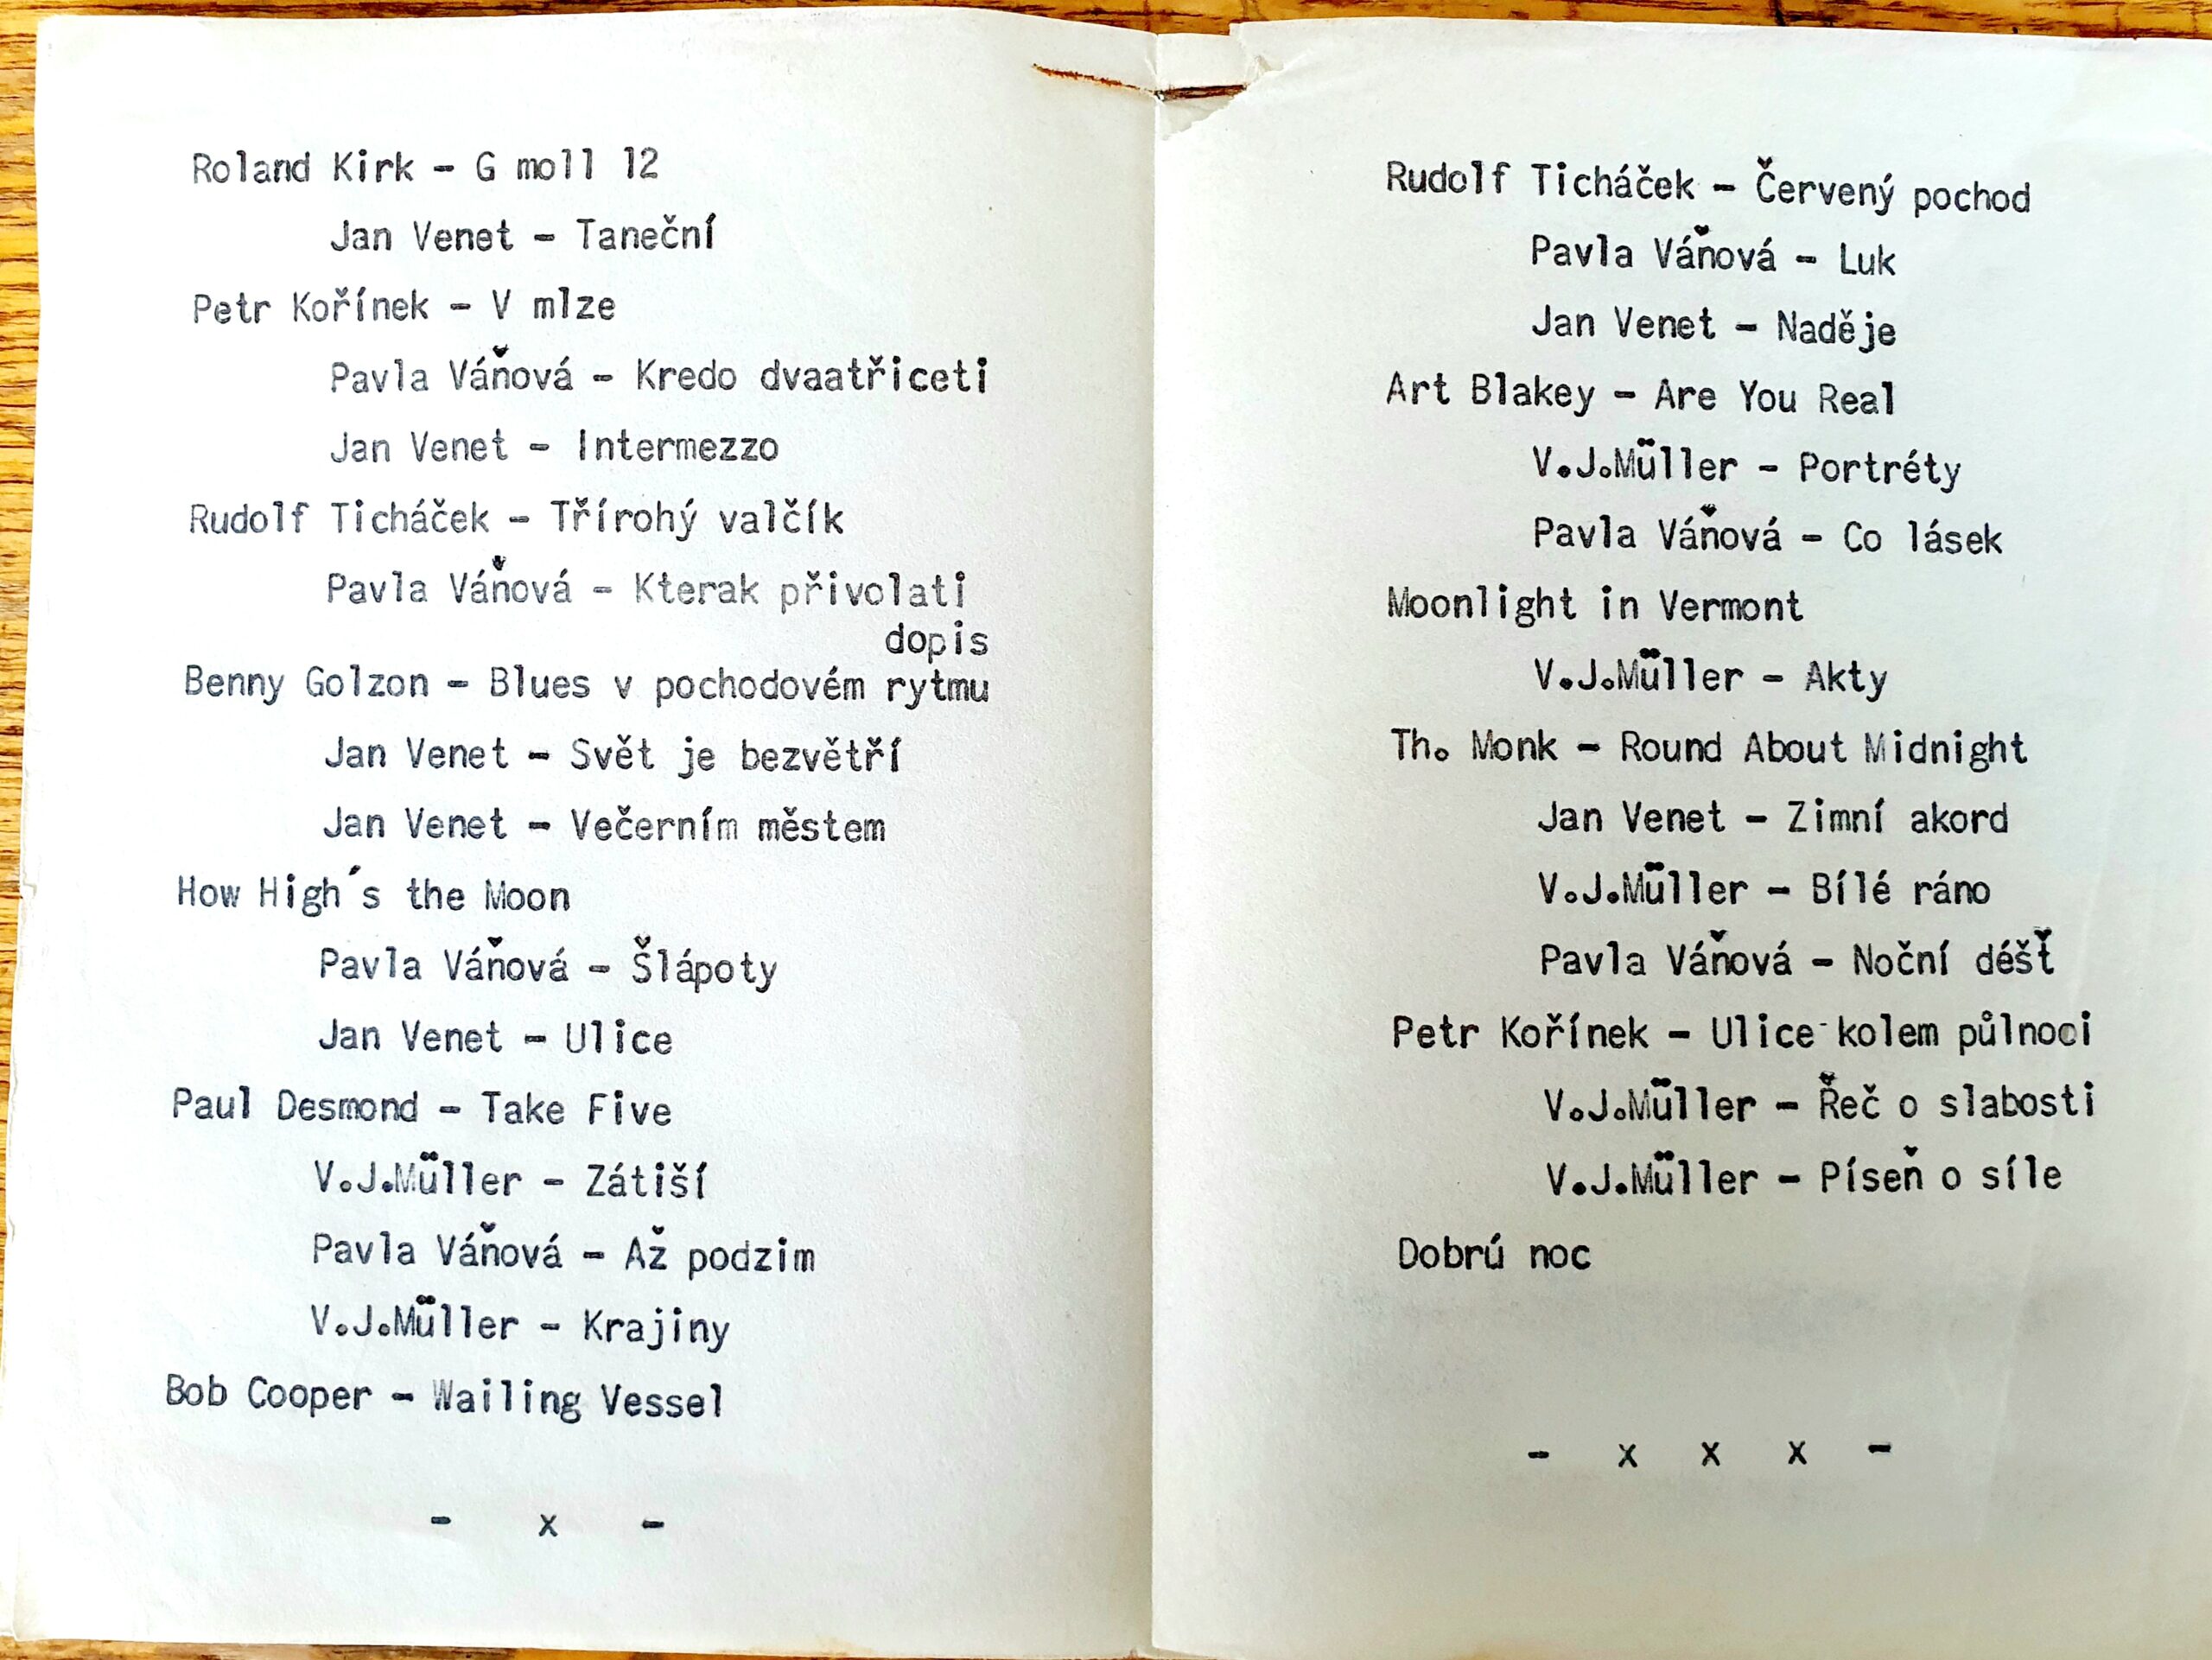 Roland Kirk - G moll 12
Jan Venet - Taneční
Petr Kořínek - V mlze
Pavla Váňová - Kredo dvaatřiceti
Jan Venet - Intermezzo
Rudolf Ticháček - Třírohý valčík
Pavla Váňová - Kterak přivolati
dopis
Benny Golzon - Blues v pochodovém rytmu
Jan Venet - Svět je bezvětří
Jan Venet - Večerním městem
How High´s the Moon
Pavla Váňová - Šlápoty
Jan Venet - Ulice
Paul Desmond - Take Five
V.J.Müller - Zátiší
Pavla Váňová - Až podzim
V.J.Müller - Krajiny
Bob Cooper - Wailing Vessel
- x -
Rudolf Ticháček - Červený pochod
Pavla Váňová - Luk
Jan Venet - Naděje
Art Blakey - Are You Real
V.J.Müller - Portréty
Pavla Váňová - Co lásek
Moonlight in Vermont
V.J.Müller - Akty
Th. Monk - Round About Midnight
Jan Venet - Zimní akord
V.J.Müller - Bílé ráno
Pavla Váňová - Noční déšť
Petr Kořínek - Ulice kolem půlnoci
V.J.Müller - Řeč o slabosti
V.J.Müller - Píseň o síle
Dobrú noc
- x x x -